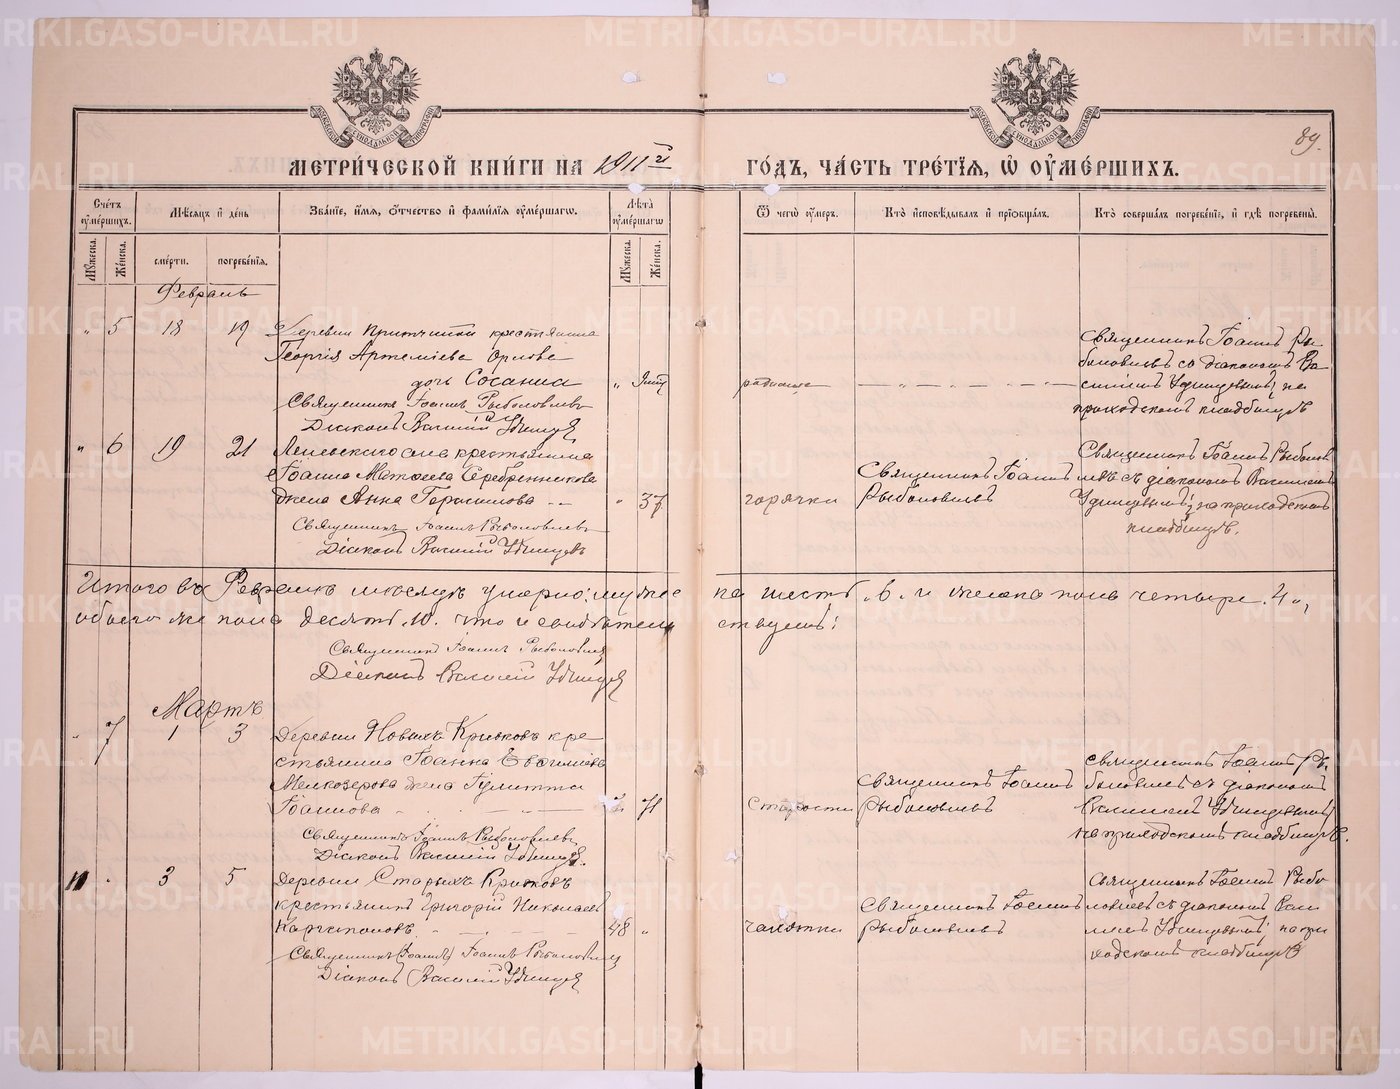 METRIKI.GASO-URAL.RU
89.
МЕТРИ́ЧЕСКОЙ КНИ́ГИ НА 1911й ГО́ДЪ, ЧА́СТЬ ТРЕ́ТІЯ, Ѡ ОУ҆МЕ́РШИХЪ.
Счетъ оумершихъ.
Мѣсяцъ и день
Званіе, имя, отчество и фамилія оумершагω.
Лѣта оумершагω
Ѿ чегω оумеръ.
Кто исповѣдывалъ и пріобщалъ.
Кто совершалъ погребеніе, и гдѣ погребены.
Мужеска.
Женска.
смерти.
погребенія.
Мужеска.
Женска.
Февраль
" 5 18 19
Деревни крестьянина
Георгія Артеміева Орлова
дочь Сосанна "
Священникъ Іоаннъ Рыболовлевъ
Діаконъ Василій Удинцевъ
Священникъ Іоаннъ Ры-
боловлевъ съ діакономъ Ва-
силіемъ Удинцевымъ; на
приходскомъ кладбищѣ
" 6 19 21
крестьянина
Іоанна Матѳеева Серебренникова
жена Анна Герасимова " 37
Священникъ Іоаннъ Рыболовлевъ
Діаконъ Василій Удинцевъ
горячки
Священникъ Іоаннъ
Рыболовлевъ
Священникъ Іоаннъ Рыболов-
левъ съ діакономъ Василіемъ
Удинцевымъ; на приходскомъ
кладбищѣ.
Итого въ Февралѣ мѣсяцѣ умерло: мужес ка шесть .6. и женска пола четыре .4.,
обоего же пола десять .10. что и свидѣтель ствуемъ:
Священникъ Іоаннъ Рыболовлевъ
Діаконъ Василій Удинцевъ
Мартъ
" 7 1 3
Деревни Новыхъ Кривковъ кре
стьянина Іоанна Евѳиміева
Мелкозерова жена Іулитта
Іоаннова 71
Священникъ Іоаннъ Рыболовлевъ
Діаконъ Василій Удинцевъ.
старости
Священникъ Іоаннъ
Рыболовлевъ
Священникъ Іоаннъ Ры-
боловлевъ съ діакономъ
Василіемъ Удинцевымъ;
на приходскомъ кладбищѣ.
11 " 3 5
Деревни Старыхъ Кривковъ
крестьянинъ Григорій Николаевъ
Каргаполовъ 48 "
Священникъ (Іоаннъ) Іоаннъ Рыболовлевъ
Діаконъ Василій Удинцевъ
чахотки
Священникъ Іоаннъ
Рыболовлевъ
Священникъ Іоаннъ Рыбо
ловлевъ съ діакономъ Васи
ліемъ Удинцевымъ; на при
ходскомъ кладбищѣ